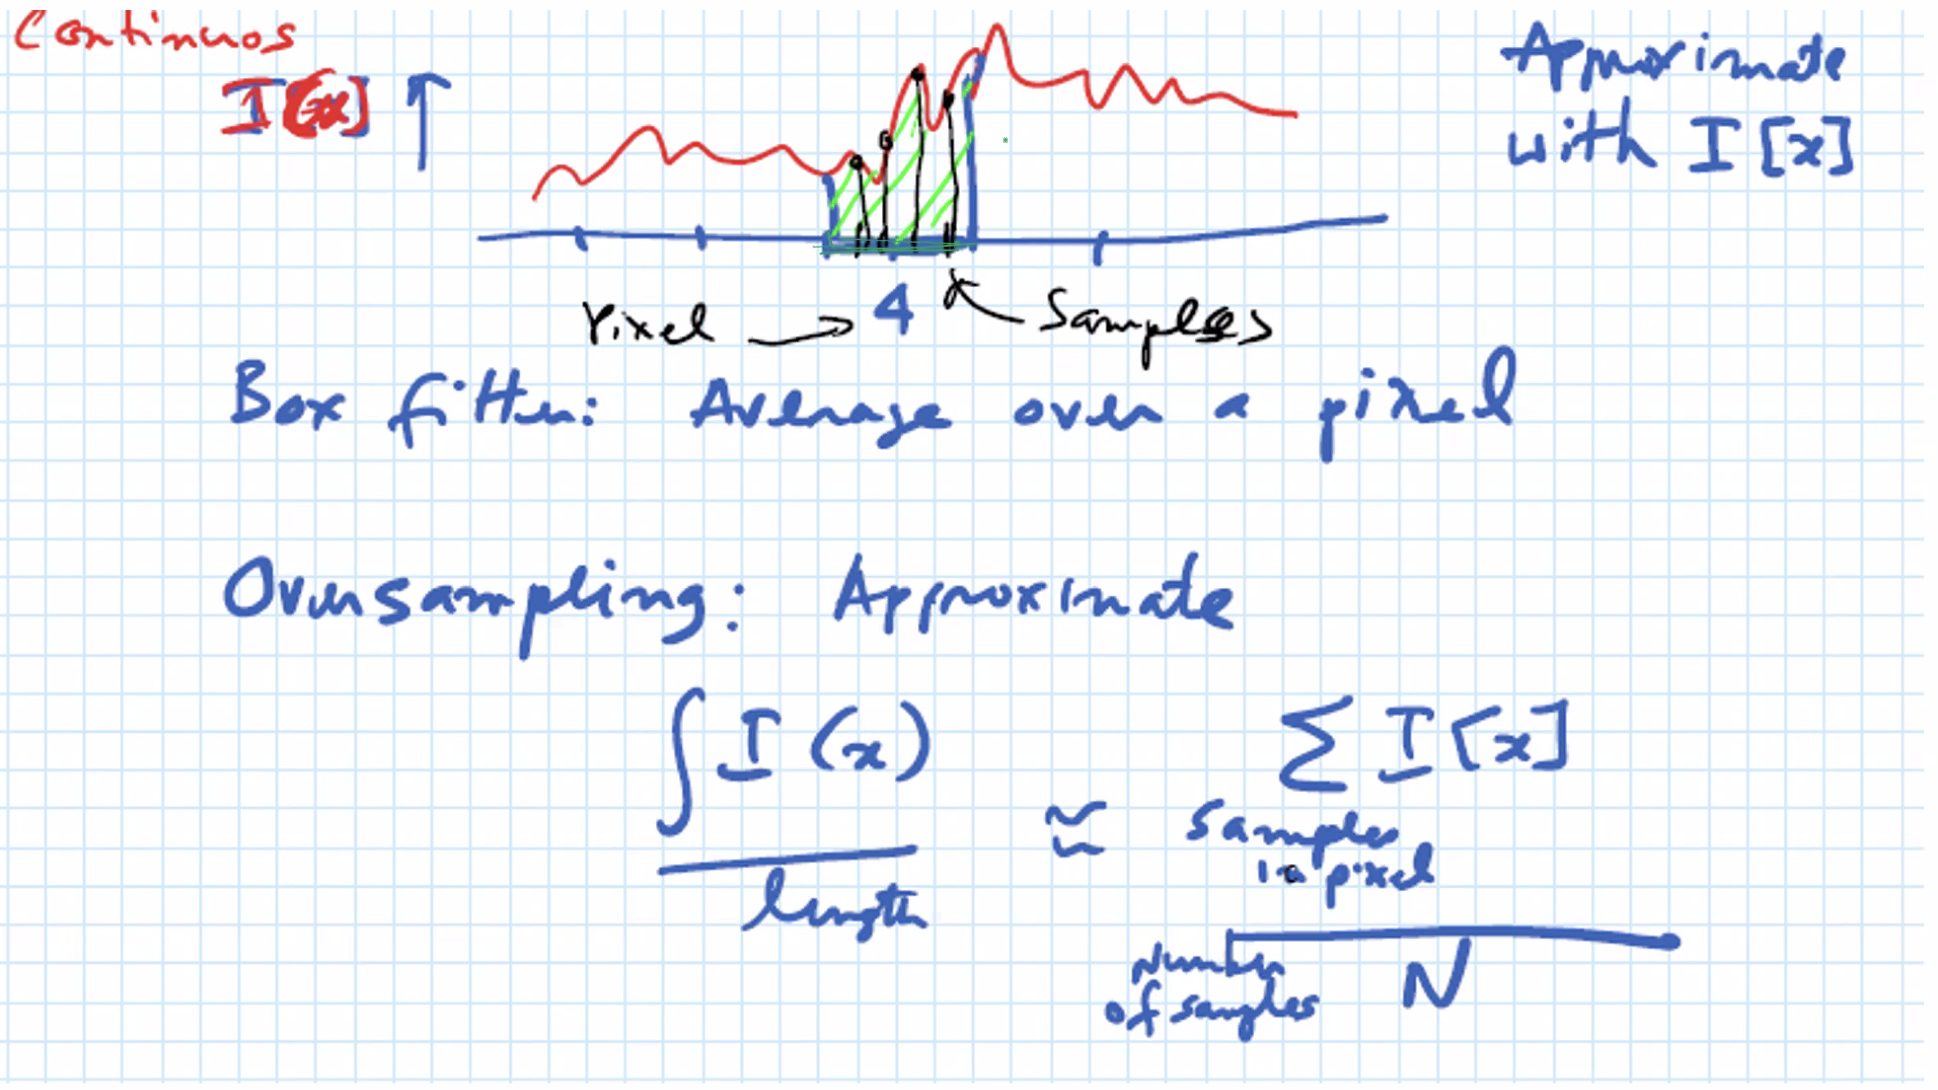 Continuos
I(x)
Approximate
with I[x]
Pixel → 4 ← Samples
Box filter: Average over a pixel
Oversampling: Approximate
∫ I(x)
length
≈
∑ I[x]
samples
in pixel
Number
of samples
N